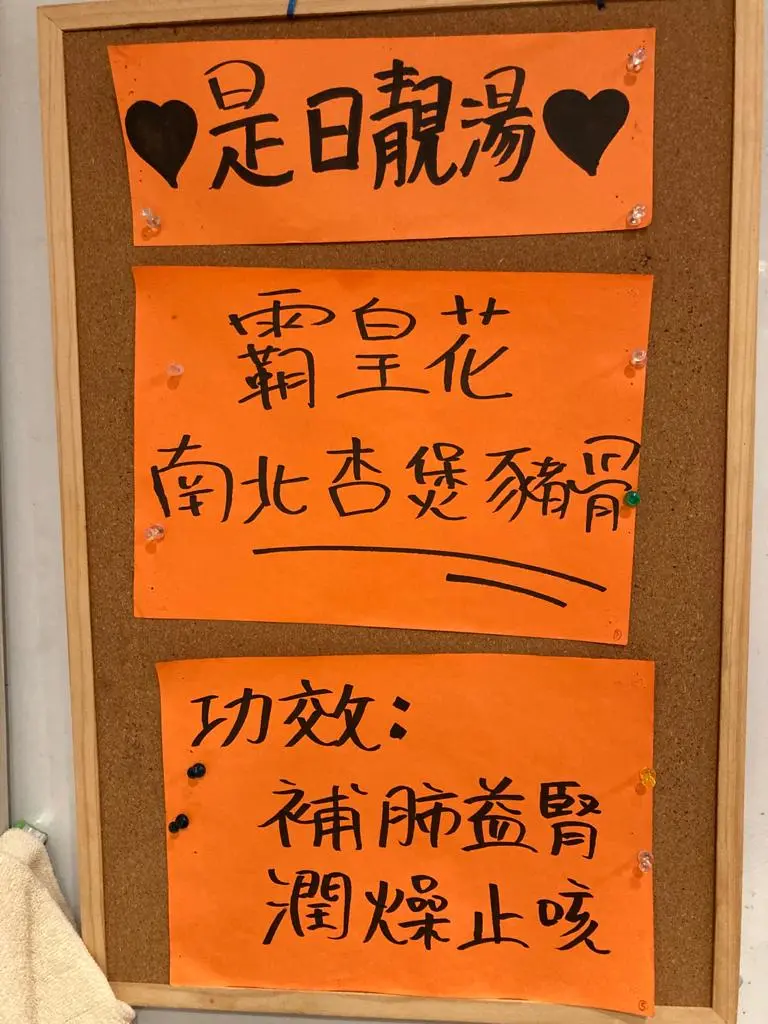 ♥是日靚湯♥
霸皇花
南北杏煲豬骨
功效:
補肺益腎
潤燥止咳